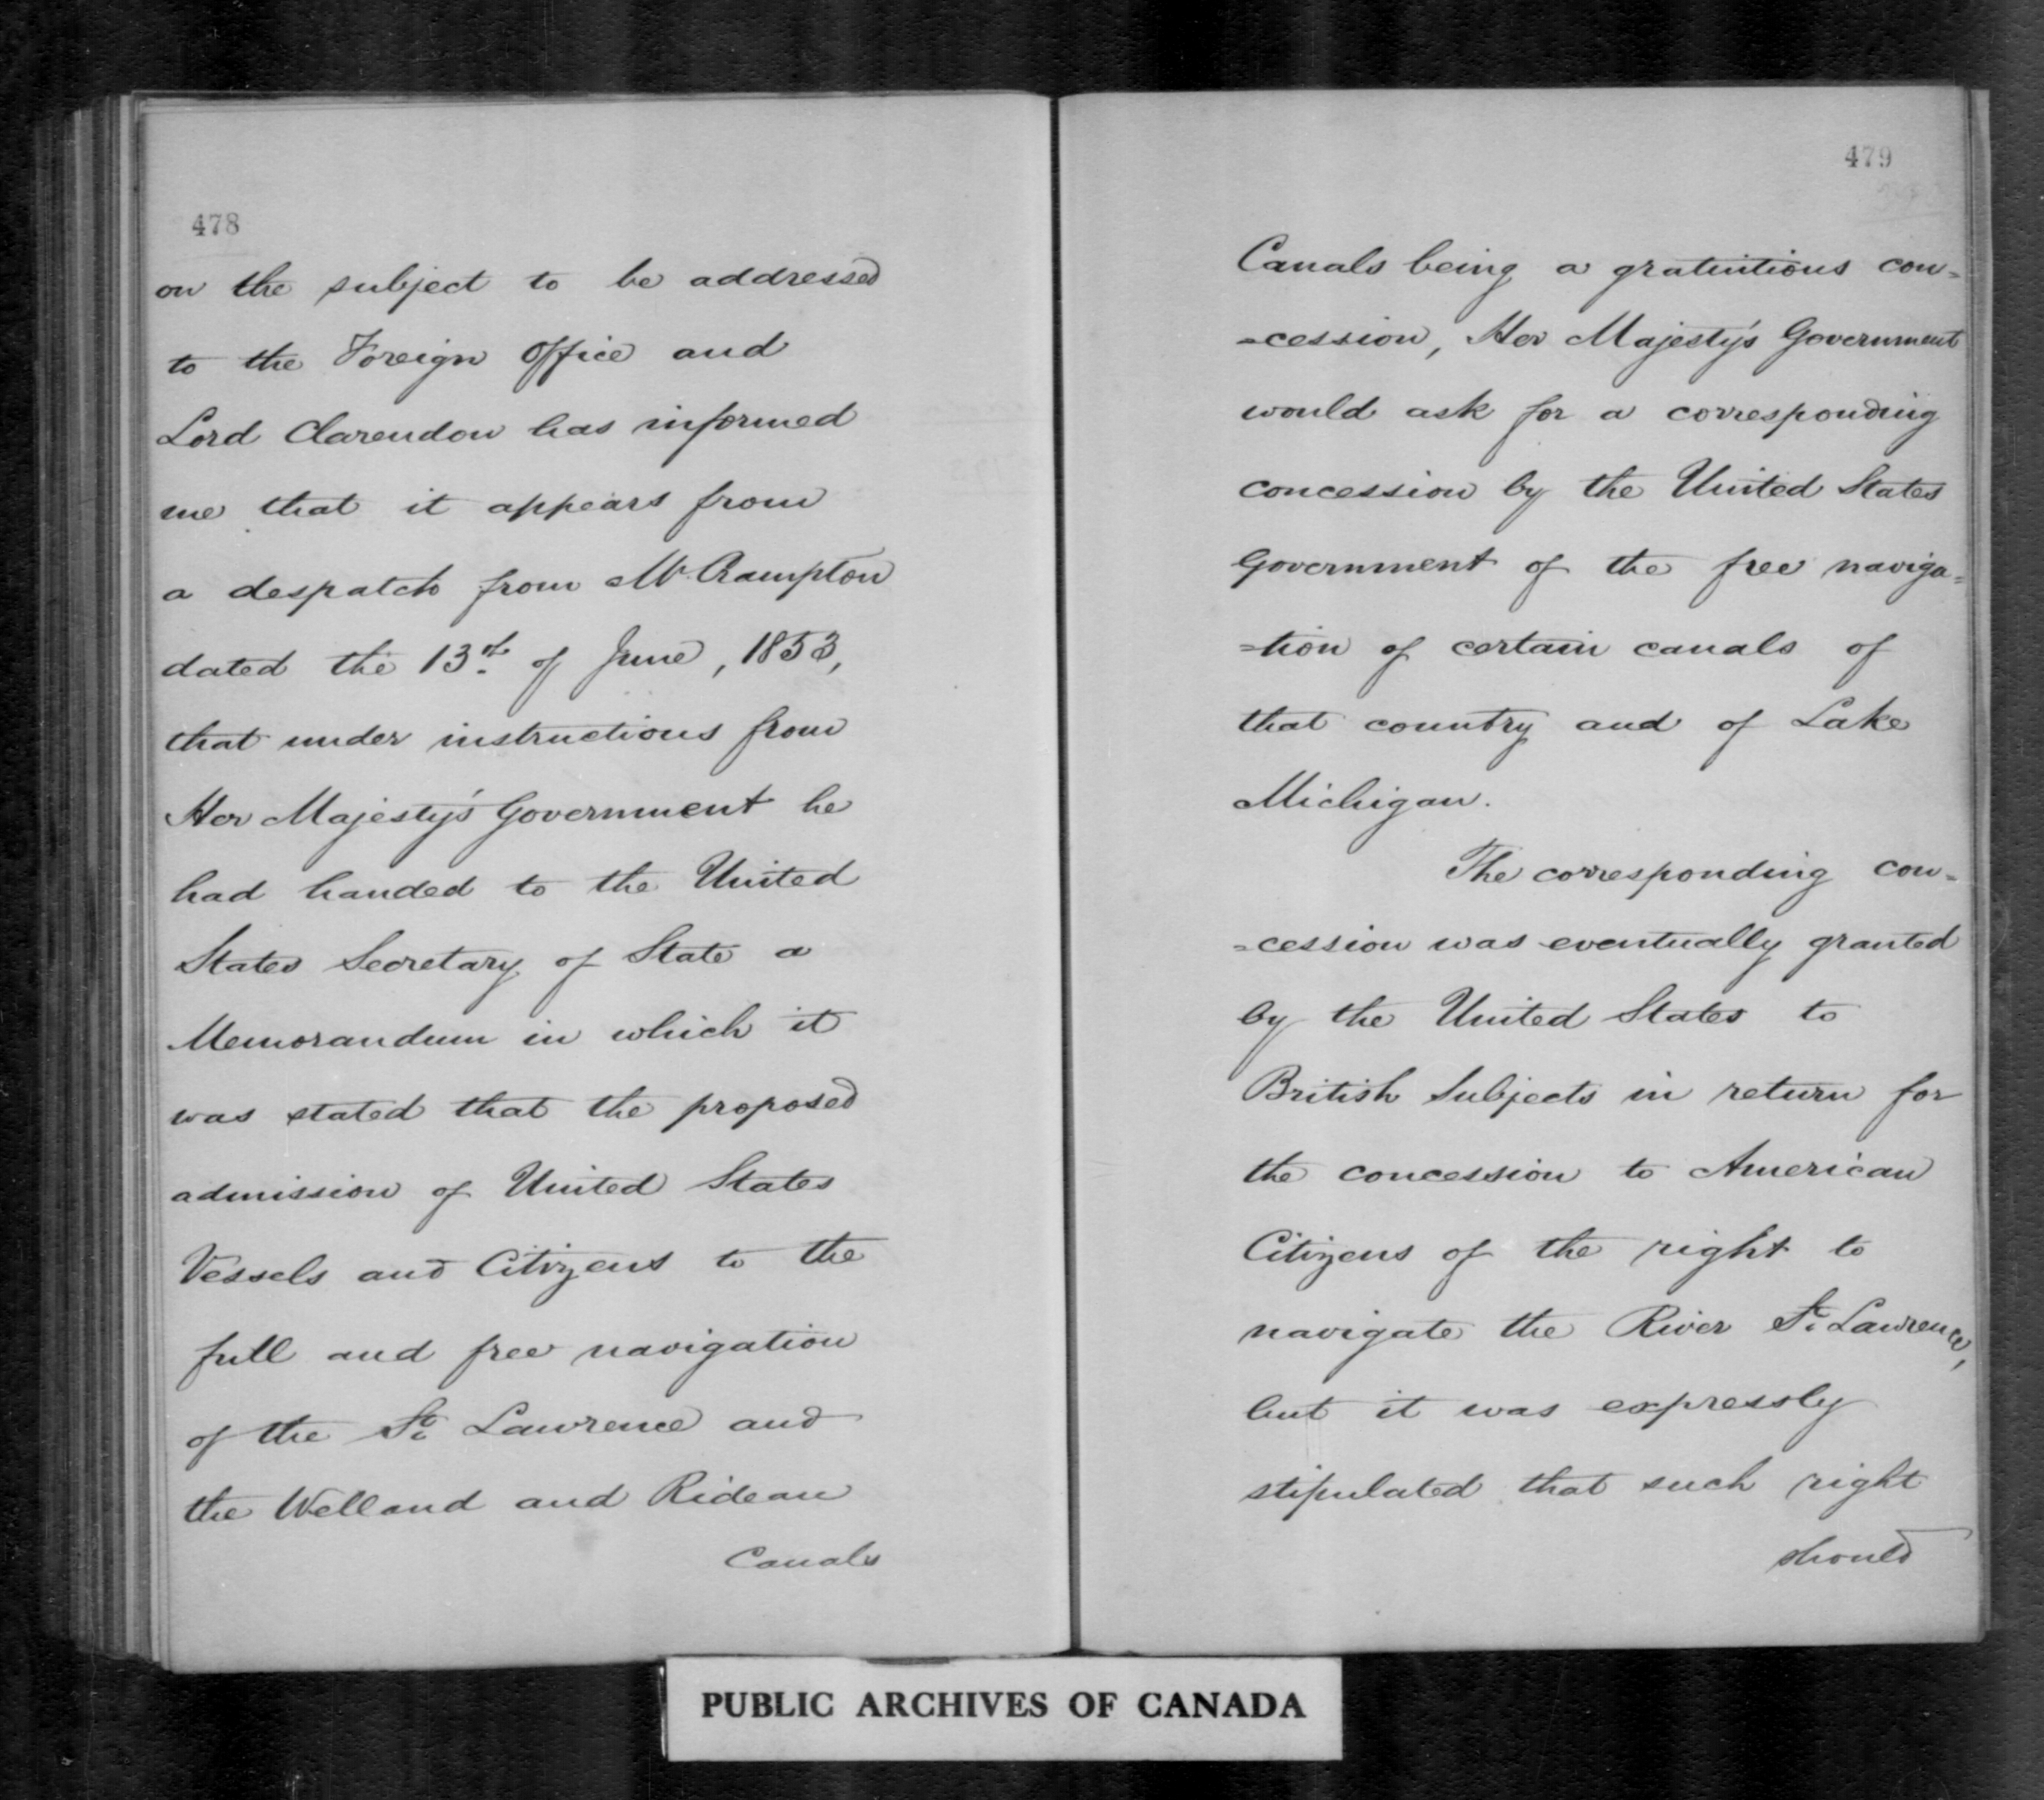 478
on the subject to be addressed
to the Foreign Office and
Lord Clarendon has informed
me that it appears from
a despatch from Mr. Crampton
dated the 13th of June, 1853,
that under instructions from
Her Majesty's Government he
had handed to the United
States Secretary of State a
Memorandum in which it
was stated that the proposed
admission of United States
Vessels and Citizens to the
full and free navigation
of the St. Lawrence and
the Welland and Rideau
Canals
479
Canals being a gratuitious con=
=cession, Her Majesty's Government
would ask for a corresponding
concession by the United States
Government of the free naviga=
=tion of certain canals of
that country and of Lake
Michigan.
The corresponding con=
=cession was eventually granted
by the United States to
British Subjects in return for
the concession to American
Citizens of the right to
navigate the River St. Lawrence,
but it was expressly
stipulated that such right
should
PUBLIC ARCHIVES OF CANADA